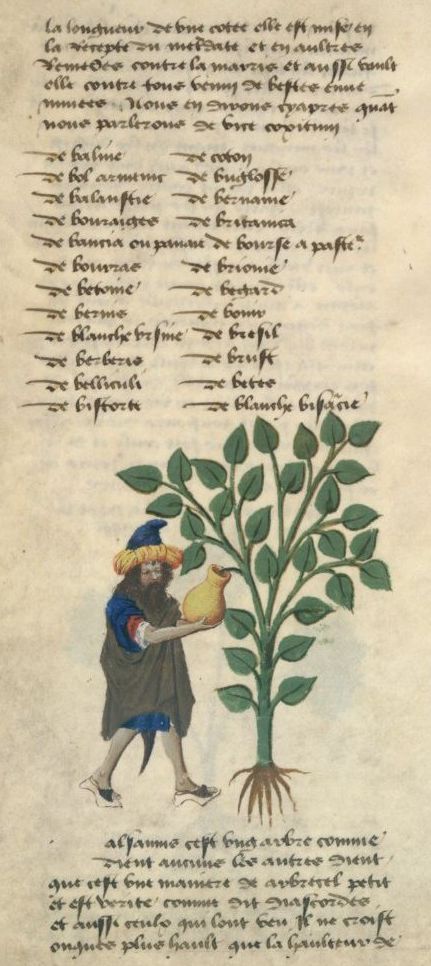 la longueur de une cotee elle est mise en
la Recepte du metridate et en aultres
Remedes contre la marris et aussi vault
elle contre tous venin de bestes enve
nimees Nous en dirons cyapres quāt
nous parlerons de vice
de balme de coton
de bol armenic de buglosse
de balaustie de bernaine
de bouraiges de britanica
de bancia ou panaie de bourse a paste
de bourras de brionie
de betoine de begard
de bernis de boure
de blanche ursine de bresil
de berberis de brust
de belliculi de betes
de bistorte de blanche
alsamus cest ung arbre comme
dient aucuns les autres dient
que cest une maniere de arbrecel petit
et est verite comme dit diascordes
et aussi ceulx qui lont veu Il ne croist
oncques plus hault que la haulteur de